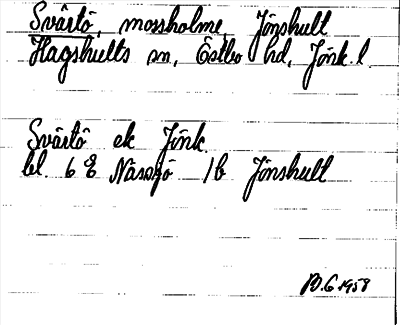 Svärtö, mossholme, Jönshult
Hagshults sn, Östbo hd, Jönk. l.
Svärtö ek Jönk.
bl. 6 E Nässjö 1b Jönshult
B.G 1958